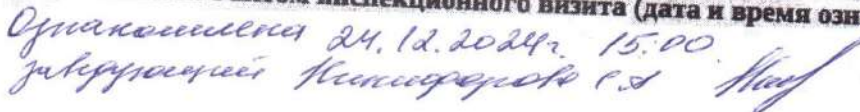 инспекционного визита (дата и время озн
Ознакомлена 24.12.2024г. 15:00
заведующий Никифорова СА